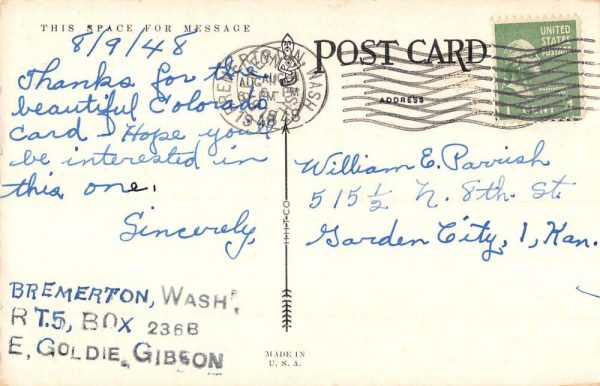 THIS SPACE FOR MESSAGE
8/9/48
Thanks for the
beautiful Colorado
card I Hope you'll
be interested in
this one.
Sincerely,
BREMERTON, WASH.
RT.5, BOX 236B
E, GOLDIE, GIBSON
BREMERTON WASH
AUG
1948
H-H-T-CO
MADE IN
U. S. A.
POST CARD
ADDRESS
UNITED
STATES
POSTAGE
William E. Parrish
515 1/2 N. 8th. St.
Garden City, 1, Kan.